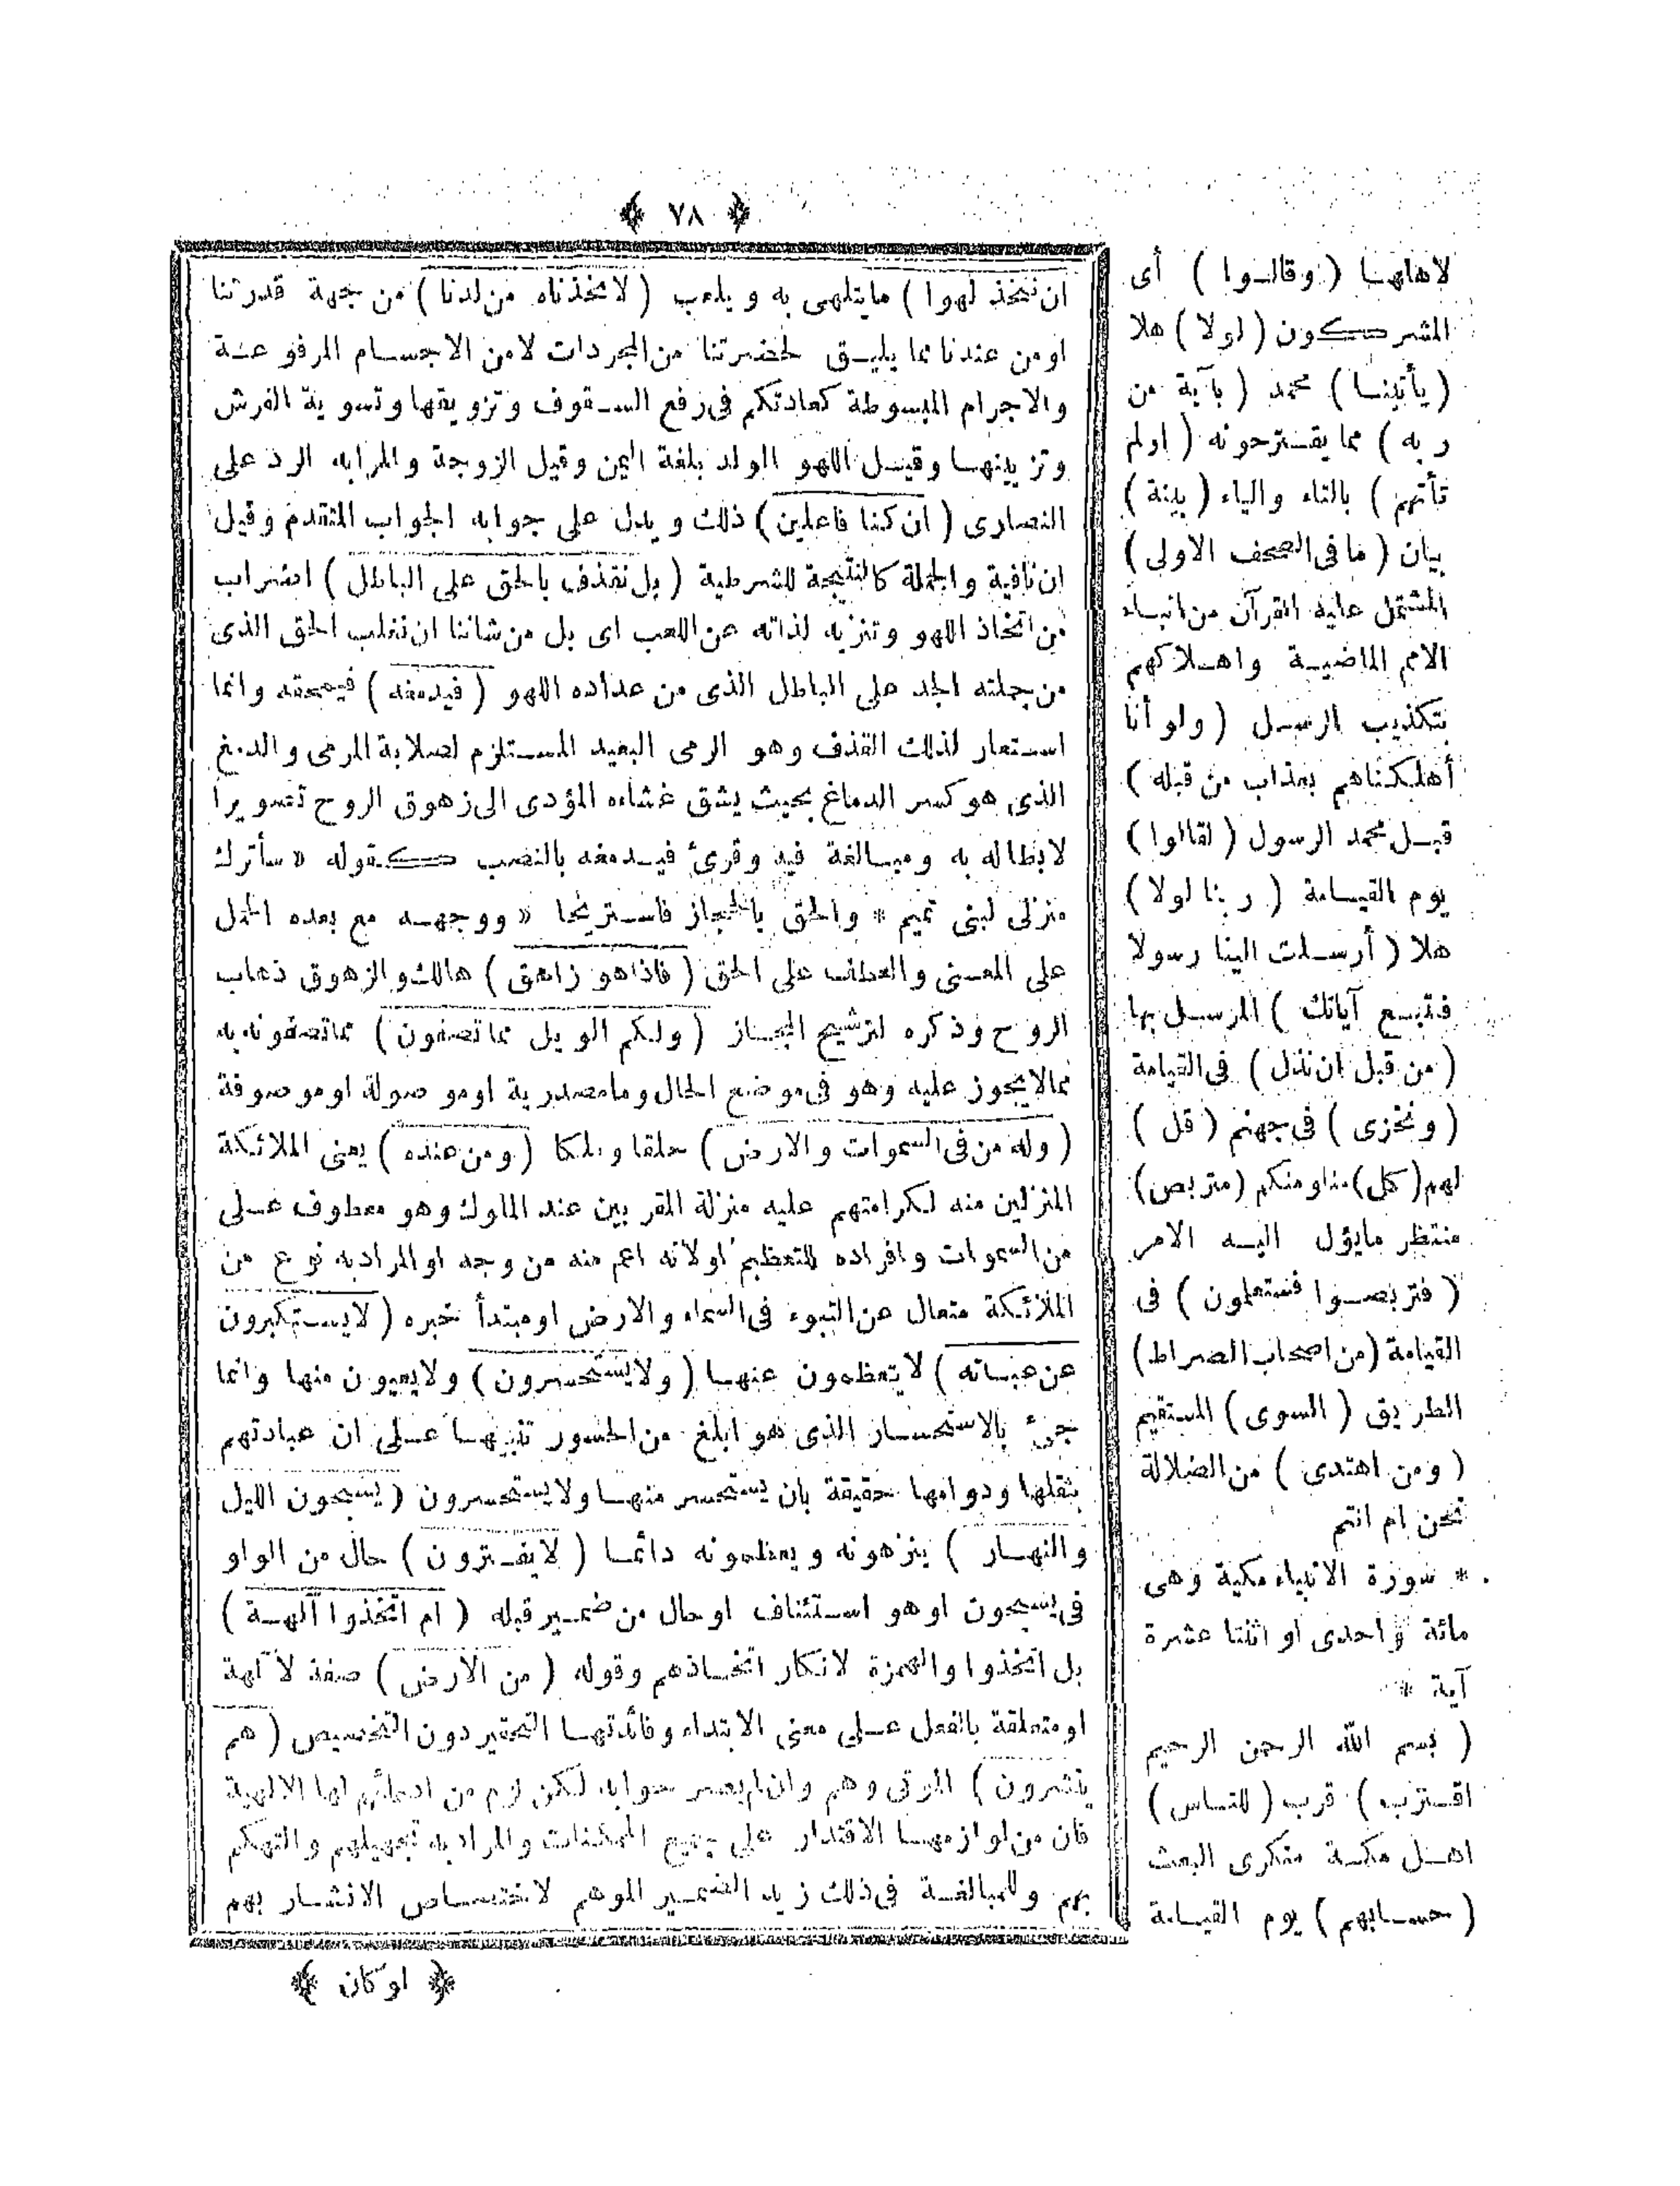 ﴿ ٧٨ ﴾
ان نتخذ لهوا ) مايتلهى به و يلعب ( لاتخذناه من لدنا ) من جهة قدرتنا
او من عندنا مما يليـق لحضرتنا من المجردات لامن الاجسـام المرفوعـة
والاجرام المبسوطة كعادتكم فى رفع السـقوف وتزويقها وتسوية الفرش
وتزيينهـا وقيـل اللهو الولد بلغة اليمن وقيل الزوجة والمرابه الرد على
النصارى ( ان كنا فاعلين ) ذلك و يدل على جوابه الجواب المتقدم وقيل
ان نافية والجملة كالنتيجة للشرطية ( بل نقذف بالحق على الباطل ) اضراب
من اتخاذ اللهو وتنزيه لذاته عن اللعب اى بل من شاننا ان نغلب الحق الذى
من جملته الجد على الباطل الذى من عداده اللهو ( فيدمغه ) فيمحقه وانما
اسـتعار لذلك القذف وهو الرمى البعيد المسـتلزم لصلابة المرمى والدمغ
الذى هو كسر الدماغ بحيث يشق غشاءه المؤدى الى زهوق الروح تصويرا
لابطاله به ومبـالغة فيه وقرئ فيـدمغه بالنصب كـقوله * سأترك
منزلى لبنى تميم * والحق بالحجاز فاسـتريحا * ووجهـه مع بعده الحمل
على المعـنى والعطف على الحق ( فاذاهو زاهق ) هالك والزهوق ذهاب
الروح وذكره لترشيح المجـاز ( ولكم الويل مما تصفون ) مما تصفونه به
مما لا يجوز عليه وهو فى موضع الحال وما مصدرية او موصولة او موصوفة
( وله من فى السموات والارض ) خلقا وملكا ( ومن عنده ) يعنى الملائكة
المنزلين منه لكرامتهم عليه منزلة المقربين عند الملوك وهو معطوف عـلى
من السموات وافراده للتعظيم اولانه اعم منه من وجه او المرادبه نوع من
الملائكة متعال عن التبوء فى السماء والارض او مبتدأ خبره ( لايسـتكبرون
عن عبـادته ) لا يتعظمون عنهـا ( ولايستحسرون ) ولايعيون منها وانما
جئ بالاستحسـار الذى هو ابلغ من الحسور تنبيهـا عـلى ان عبادتهم
بثقلها ودوامها حقيقة بان يستحسر منهـا ولايستحسرون ( يسبحون الليل
والنهـار ) ينزهونه ويعظمونه دائمـا ( لايفـترون ) حال من الواو
فى يسبحون او هو اسـتئناف او حال من ضمـير قبله ( ام اتخذوا آلهـة )
بل اتخذوا والهمزة لانكار اتخـاذهم وقوله ( من الارض ) صفة لآلهة
او متعلقة بالفعل عـلى معنى الابتداء وفائدتهـا التحقير دون التخصيص ( هم
ينشرون ) الموتى وهم وان لم يصرحوا به لكن لزم من ادعائهم لها الالهية
فان من لوازمهـا الاقتدار على جميع الممكنات والمرادبه تجهيلهم والتهكم
بهم وللمبالغـة فى ذلك زيد الضمـير الموهم لاختصـاص الانشـار بهم
﴿ اوكان ﴾
لاهلهـا ( وقالـوا ) أى
المشركـون ( لولا ) هلا
( يأتينـا ) محمد ( بآية من
ربه ) مما يقـترحونه ( اولم
تأتهم ) بالتاء والياء ( بينة )
بيان ( ما فى الصحف الاولى )
المشتمل عليه القرآن من انبـاء
الامم الماضيـة واهـلاكهم
بتكذيب الرسـل ( ولو أنا
أهلكناهم بعذاب من قبله )
قبـل محمد الرسول ( لقالوا )
يوم القيـامة ( ربنا لولا )
هلا ( أرسـلت الينا رسولا
فنتبـع آياتك ) المرسـل بها
( من قبل ان نذل ) فى القيامة
( ونخزى ) فى جهنم ( قل )
لهم ( كل ) منا ومنكم ( متربص )
منتظر مايؤل اليـه الامر
( فتربصـوا فستعلمون ) فى
القيامة ( من اصحاب الصراط )
الطريق ( السوى ) المستقيم
( ومن اهتدى ) من الضلالة
نحن ام انتم
* سورة الانبياء مكية وهى
مائة واحدى او اثنتا عشرة
آية *
( بسم الله الرحمن الرحيم
اقـترب ) قرب ( للنـاس )
اهـل مكـة منكرى البعث
( حسـابهم ) يوم القيـامة